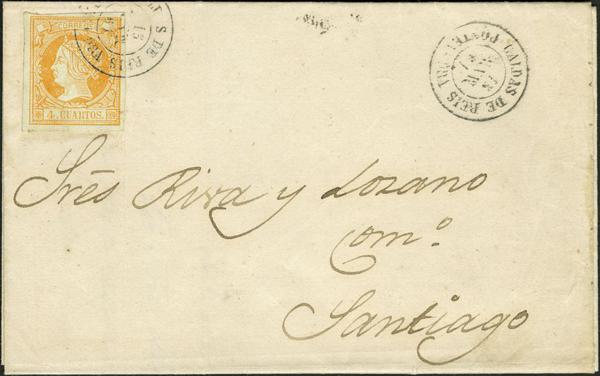 CORREOS
4 CUARTOS.
S DE REIS
15
CALDAS DE REIS
PONTEV
Srēs Riva y Lozano
Comº
Santiago